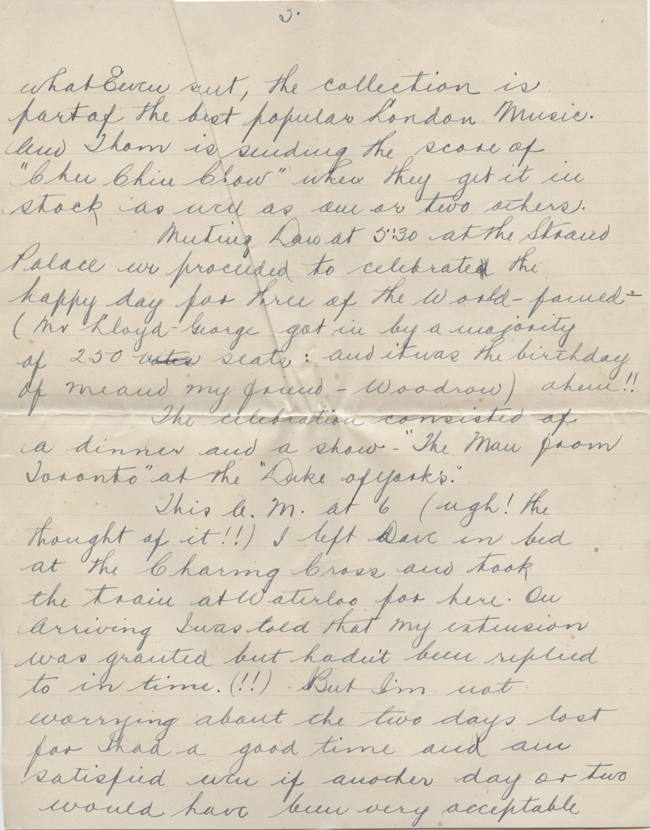 5.
what Ewen sent, the collection is
part of the best popular London Music.
And Thom is sending the score of
"Chu Chin Chow" when they get it in
stock as well as one or two others.
Meeting Dave at 5:30 at the Strand
Palace we proceeded to celebrate the
happy day for three of the World-famed-
(Mr Lloyd-George got in by a majority
of 250 votes seats: and it was the birthday
of me and my friend - Woodrow) ahem!!
The celebration consisted of
a dinner and a show - "The Man from
Toronto" at the "Duke of York's."
This A.M. at 6 (ugh! the
thought of it!!) I left Dave in bed
at the Charing Cross and took
the train at Waterloo for here. On
Arriving I was told that my extension
was granted but hadn't been replied
to in time. (!!) But I'm not
worrying about the two days lost
for I had a good time and am
satisfied even if another day or two
would have been very acceptable